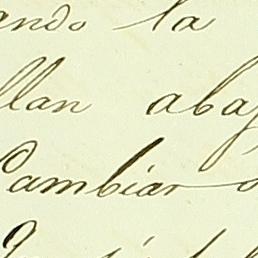 ando la
llan abaj
Cambiar